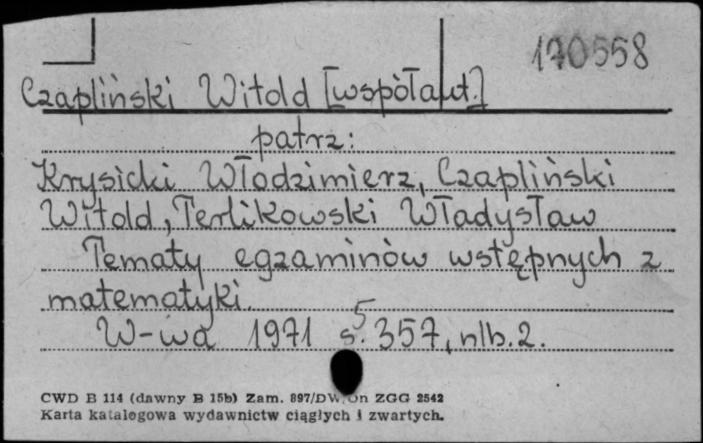 170558
Czapliński Witold [współaut.]
patrz:
Krysicki Włodzimierz, Czapliński
Witold, Terlikowski Władysław
Tematy egzaminów wstępnych z
matematyki.
W-wa 1971 s. 357, nlb. 2.
5
CWD B 114 (dawny B 15b) Zam. 897/DW/On ZGG 2542
Karta katalogowa wydawnictw ciągłych i zwartych.